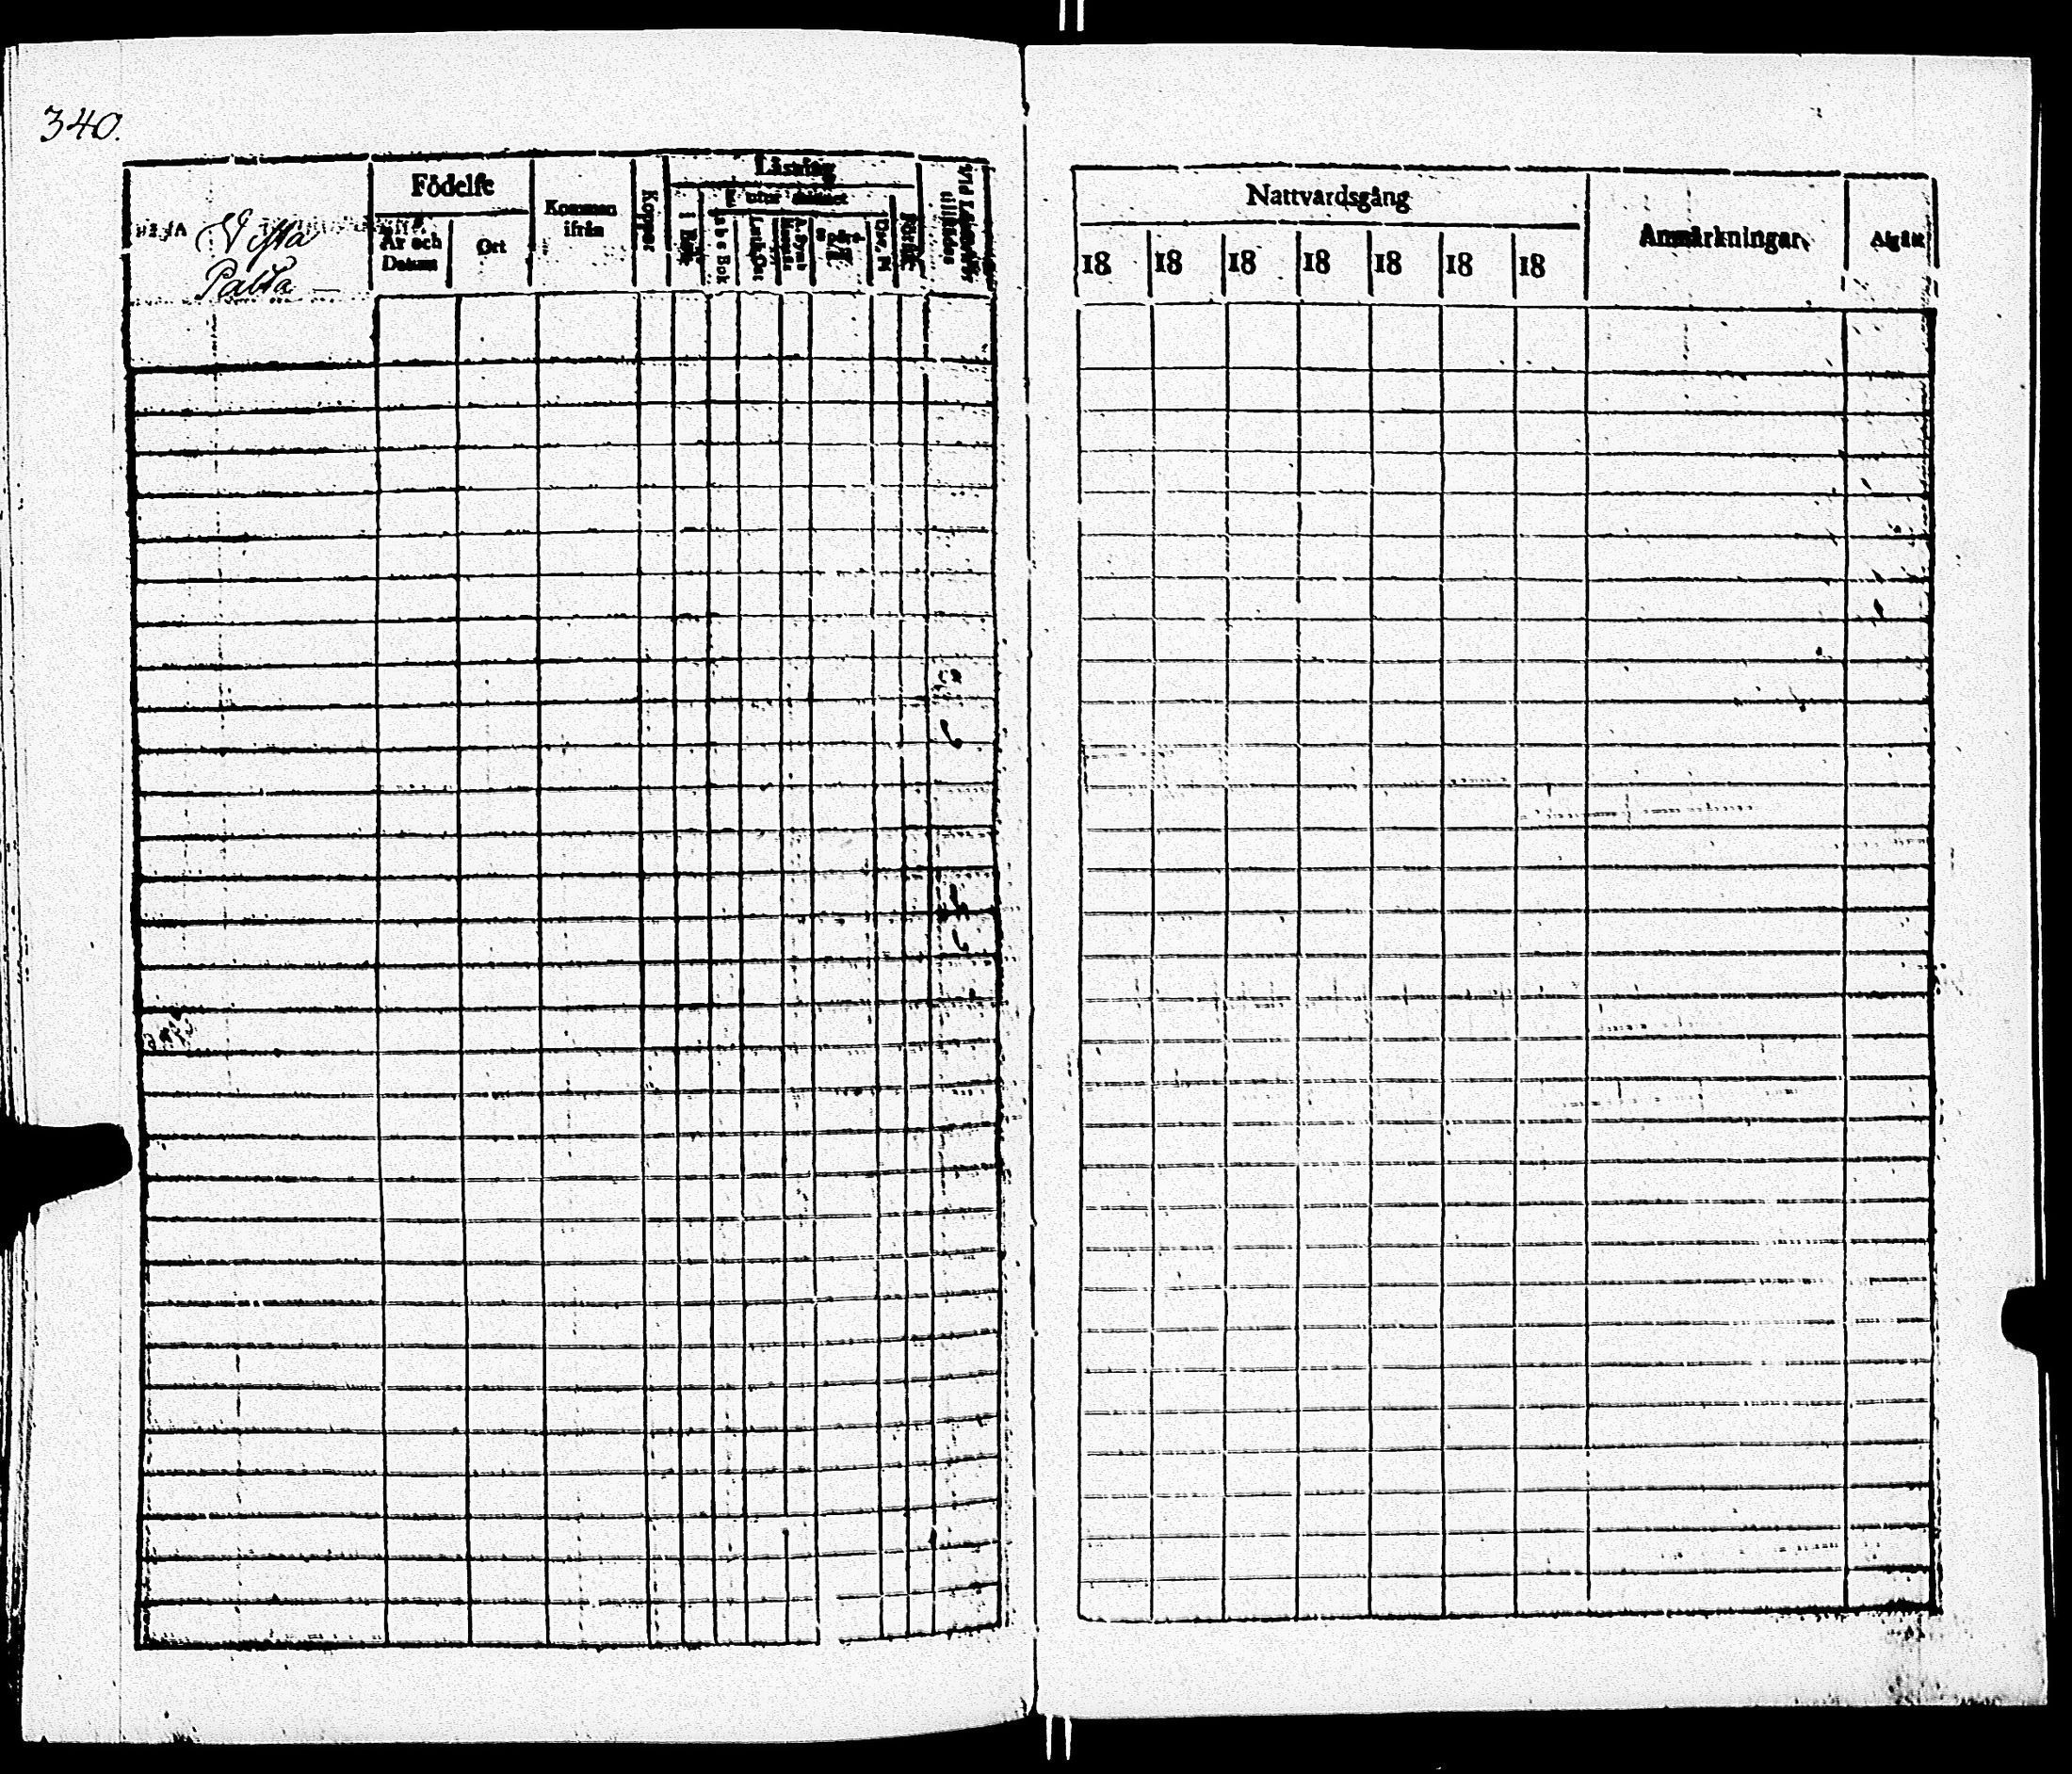 340.
Vista
Palta
Födelse
År och
Datum
Ort
Kommen
ifrån
Koppor
Läsning
i Bok
a b c Bok
Luth. Cat
Nattvardsgång
18 18 18 18 18 18 18
Anmärkningar.
Afgått